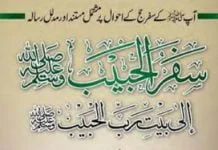 آپ ﷺ کے سفر حج کے احوال پر مشتمل مستند اور مدلل رسالہ
سفر الحبيب ﷺ
إلى بيت رب الحبيب ﷺ